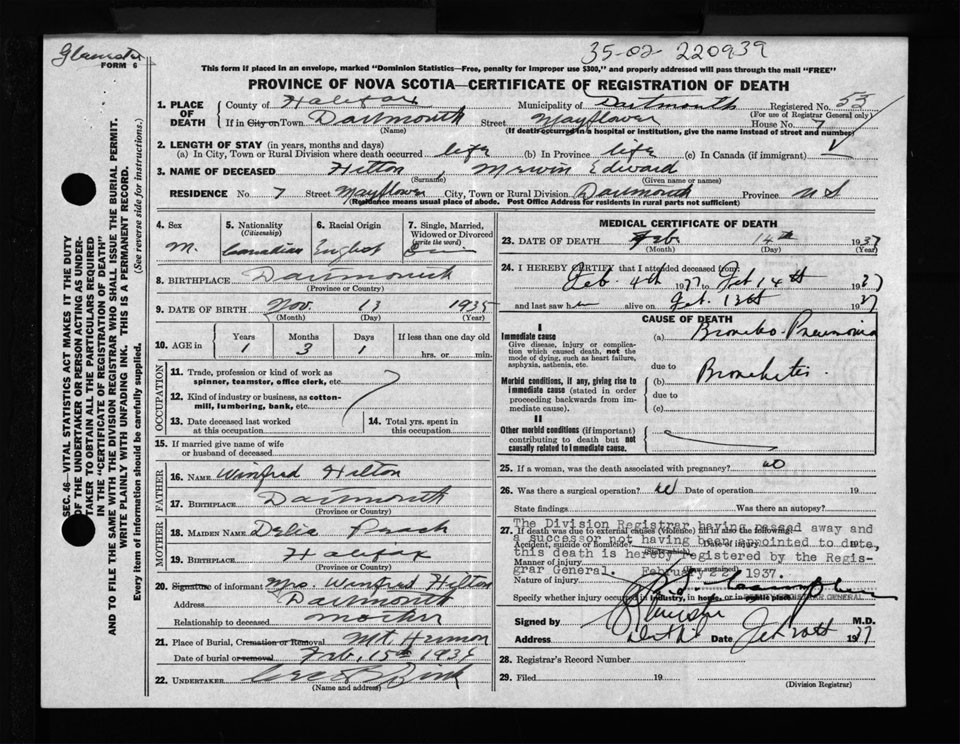 FORM 6
35-02 220939
This form if placed in an envelope, marked "Dominion Statistics—Free, penalty for improper use $300," and properly addressed will pass through the mail "FREE"
PROVINCE OF NOVA SCOTIA—CERTIFICATE OF REGISTRATION OF DEATH
1. PLACE OF DEATH
County of Halifax Municipality of Dartmouth Registered No. 53
(For use of Registrar General only)
If in City or Town Dartmouth Street Mayflower House No. 7
(Name) (If death occurred in a hospital or institution, give the name instead of street and number)
2. LENGTH OF STAY (in years, months and days)
(a) In City, Town or Rural Division where death occurred life (b) In Province life (c) In Canada (if immigrant)
3. NAME OF DECEASED Hilton, Merwin Edward
(Surname) (Given name or names)
RESIDENCE No. 7 Street Mayflower City, Town or Rural Division Dartmouth Province N S
(Residence means usual place of abode. Post Office Address for residents in rural parts not sufficient)
4. Sex 5. Nationality (Citizenship) 6. Racial Origin 7. Single, Married, Widowed or Divorced (write the word)
M. Canadian English
8. BIRTHPLACE Dartmouth
(Province or Country)
9. DATE OF BIRTH Nov. 13 1935
(Month) (Day) (Year)
10. AGE in Years Months Days If less than one day old
1 3 1 hrs. or min.
OCCUPATION
11. Trade, profession or kind of work as spinner, teamster, office clerk, etc.
12. Kind of industry or business, as cotton-mill, lumbering, bank, etc.
13. Date deceased last worked at this occupation
14. Total yrs. spent in this occupation
15. If married give name of wife or husband of deceased
FATHER
16. NAME Winfred Hilton
17. BIRTHPLACE Dartmouth
(Province or Country)
MOTHER
18. MAIDEN NAME Delia Peach
19. BIRTHPLACE Halifax
(Province or Country)
20. Signature of informant Mrs. Winfred Hilton
Address Dartmouth
Relationship to deceased mother
21. Place of Burial, Cremation or Removal Mt. Hermon
Date of burial or removal Feb. 15th 1935
22. UNDERTAKER
(Name and address)
MEDICAL CERTIFICATE OF DEATH
23. DATE OF DEATH Feb. 14th 1937
(Month) (Day) (Year)
24. I HEREBY CERTIFY that I attended deceased from:
Feb. 4th 1937 to Feb 14th 1937
and last saw h alive on Feb. 13th 1937
CAUSE OF DEATH
I
Immediate cause
Give disease, injury or complication which caused death, not the mode of dying, such as heart failure, asphyxia, asthenia, etc.
(a) Broncho-Pneumonia
due to
Morbid conditions, if any, giving rise to immediate cause (stated in order proceeding backwards from immediate cause).
(b) Bronchitis.
due to
(c)
II
Other morbid conditions (if important) contributing to death but not causally related to immediate cause.
25. If a woman, was the death associated with pregnancy? no
26. Was there a surgical operation? no Date of operation 19
State findings Was there an autopsy?
27. If death was due to external causes (violence) fill in also the following:
The Division Registrar having passed away and
Accident, suicide or homicide? Date of injury 19
a successor not having been appointed to date,
Manner of injury
this death is hereby registered by the Regis-
Nature of injury
trar General. February 22, 1937.
Specify whether injury occurred in industry, in home, or in public place
Signed by M.D.
Address Date Feb 20th 1937
28. Registrar's Record Number
29. Filed 19
(Division Registrar)
SEC. 46—VITAL STATISTICS ACT MAKES IT THE DUTY
OF THE UNDERTAKER OR PERSON ACTING AS UNDER-
TAKER TO OBTAIN ALL THE PARTICULARS REQUIRED
IN THE "CERTIFICATE OF REGISTRATION OF DEATH"
AND TO FILE THE SAME WITH THE DIVISION REGISTRAR WHO SHALL ISSUE THE BURIAL PERMIT.
WRITE PLAINLY WITH UNFADING INK. THIS IS A PERMANENT RECORD.
Every item of information should be carefully supplied. (See reverse side for instructions.)